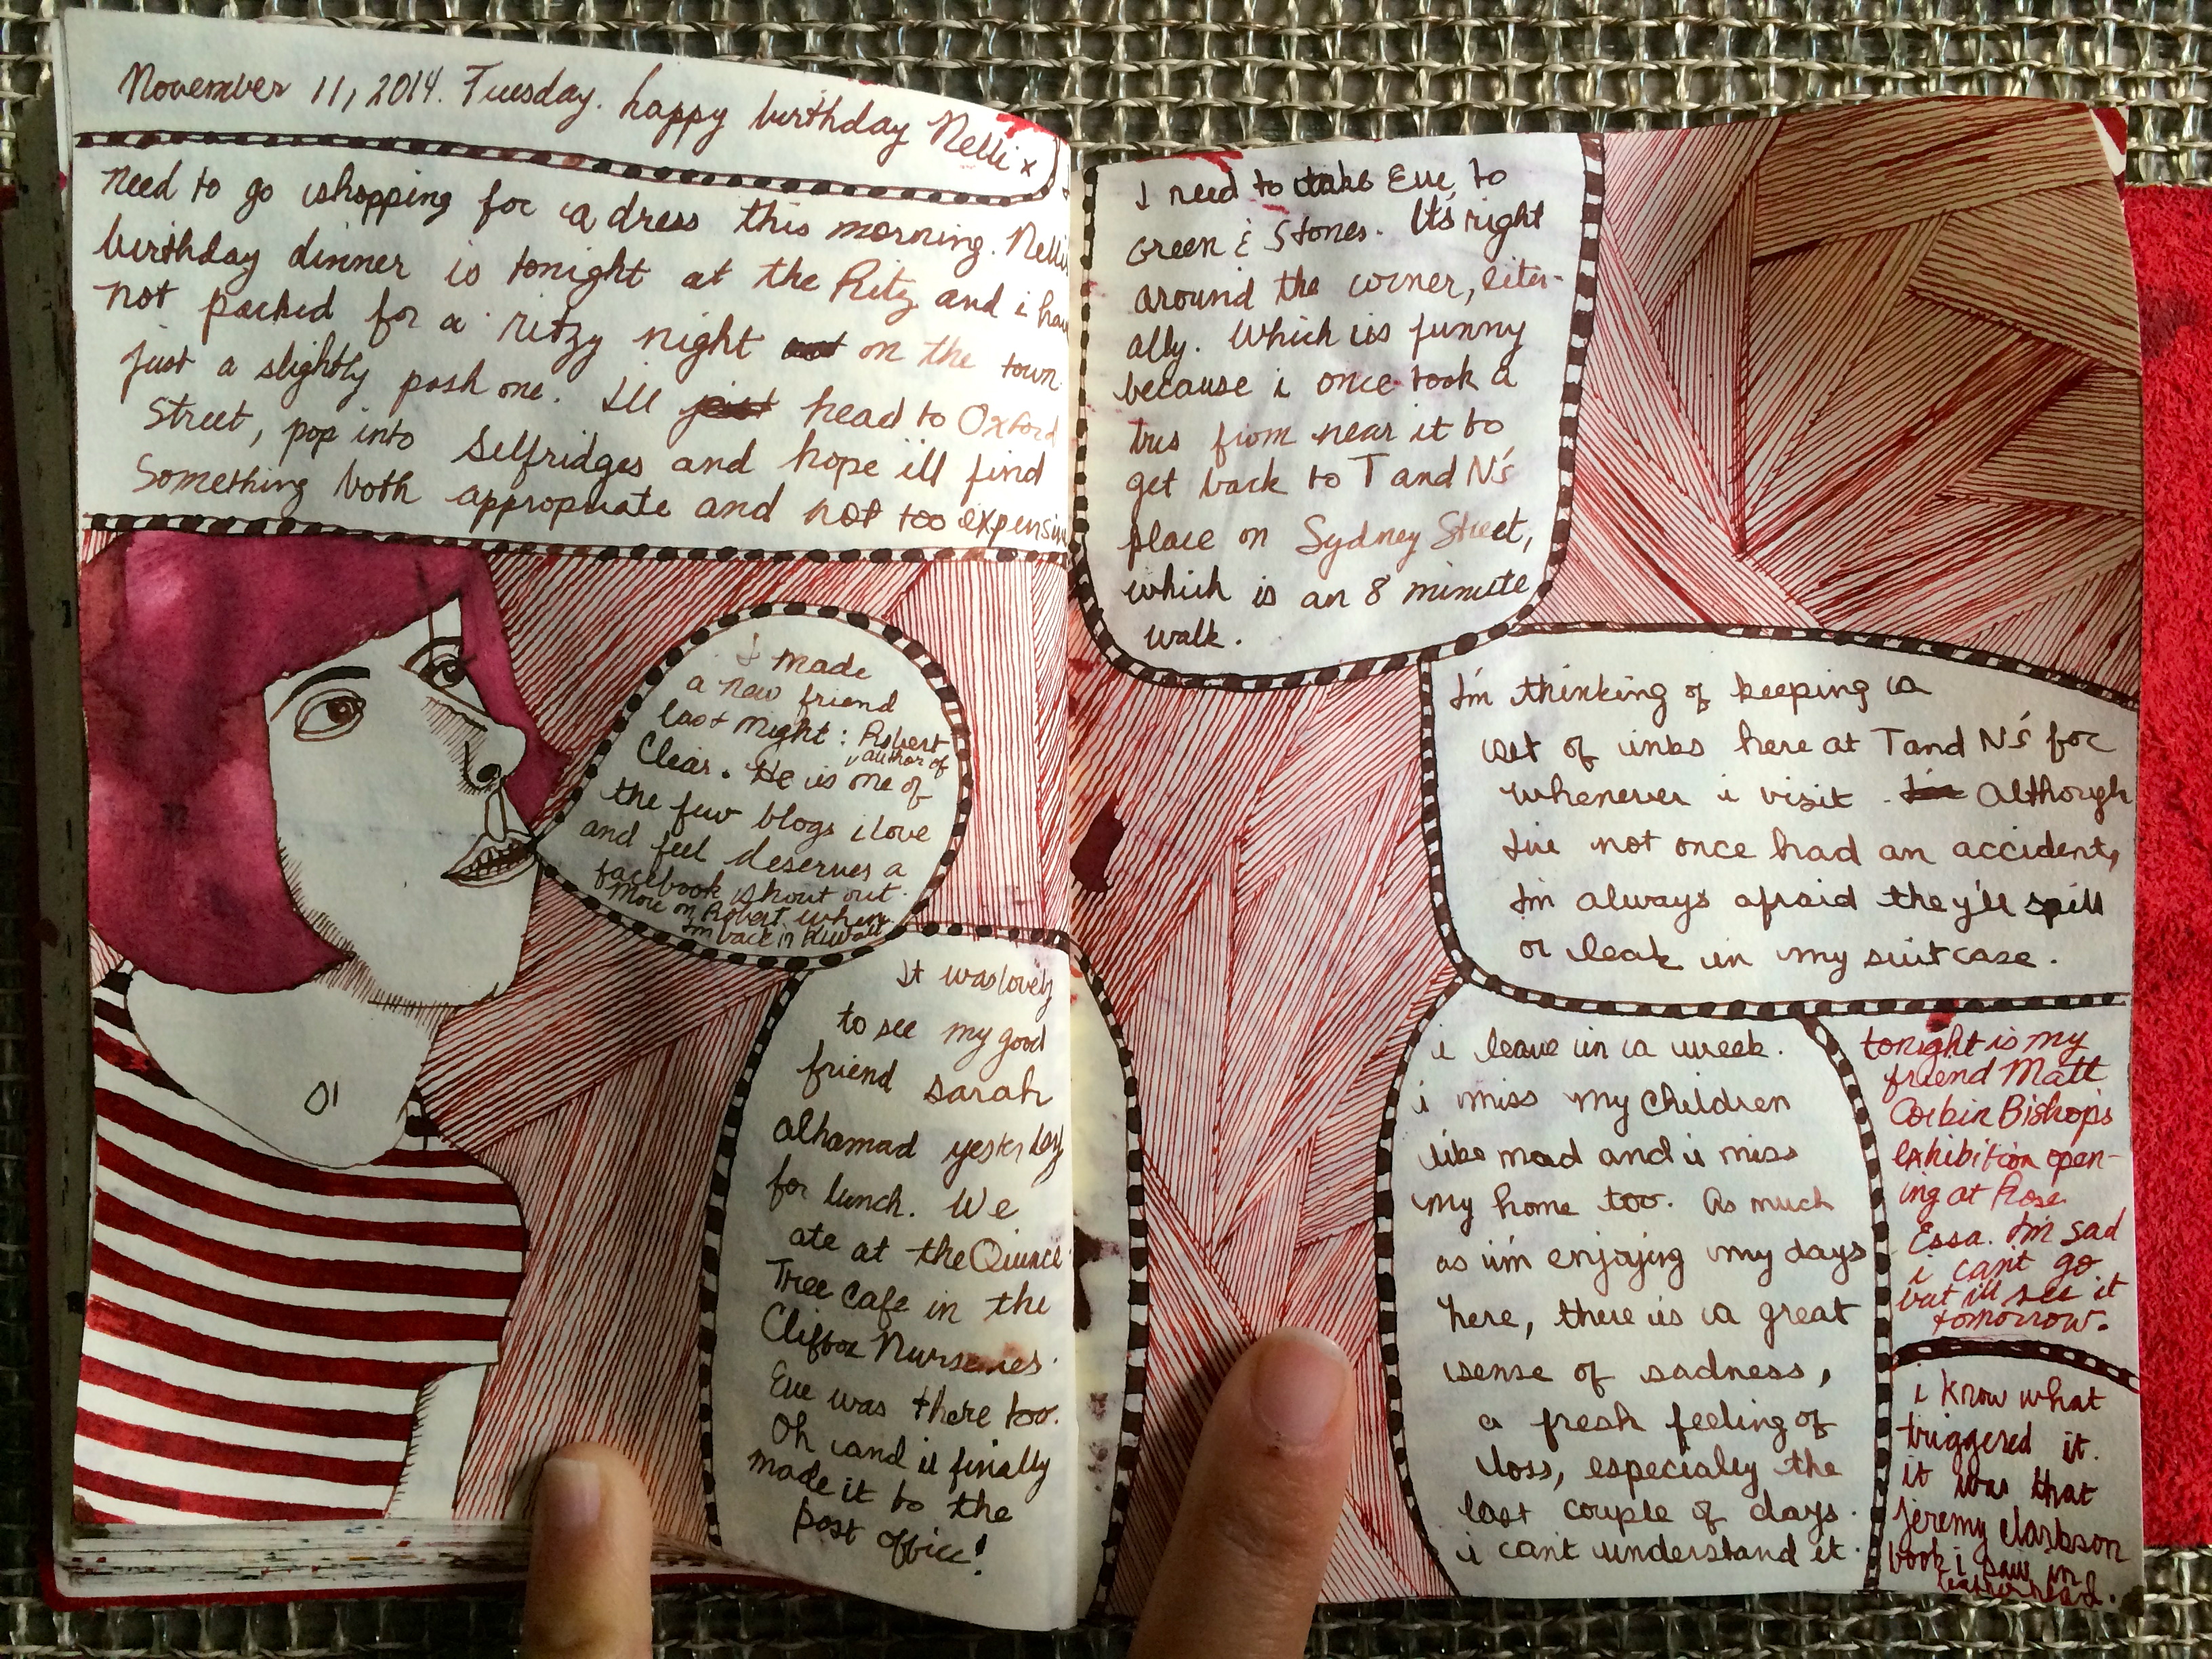 November 11, 2014. Tuesday. happy birthday Nelli x
Need to go shopping for a dress this morning. Nelli
birthday dinner is tonight at the Ritz and i hav
not packed for a ritzy night on the town.
Just a slightly posh one. I'll just head to Oxford
Street, pop into Selfridges and hope ill find
Something both appropriate and not too expensiv
I made
a new friend
last night: Robert
Clear. He is author of one of
the few blogs i love
and feel deserves a
facebook shout out.
More on Robert when
I'm back in Kuwait
It was lovely
to see my good
friend sarah
alhamad yesterday
for lunch. We
ate at the Quince
Tree Cafe in the
Clifton Nurseries.
Eve was there too.
Oh and i finally
made it to the
post office!
I need to take Eve to
Green & Stones. It's right
around the corner, liter-
ally. Which is funny
because i once took a
bus from near it to
get back to T and N's
place on Sydney Street,
which is an 8 minute
walk.
I'm thinking of keeping a
set of inks here at T and N's for
whenever i visit. I'm Although
I've not once had an accident,
I'm always afraid they'll spill
or leak in my suitcase.
i leave in a week.
i miss my children
like mad and i miss
my home too. As much
as i'm enjoying my days
here, there is a great
sense of sadness,
a fresh feeling of
loss, especially the
last couple of days.
i can't understand it.
tonight is my
friend Matt
Corbin Bishop's
exhibition open-
ing at Rose
Essa. I'm sad
i can't go
but ill see it
tomorrow.
i know what
triggered it.
it was that
jeremy clarkson
book i saw in
leatherhead.